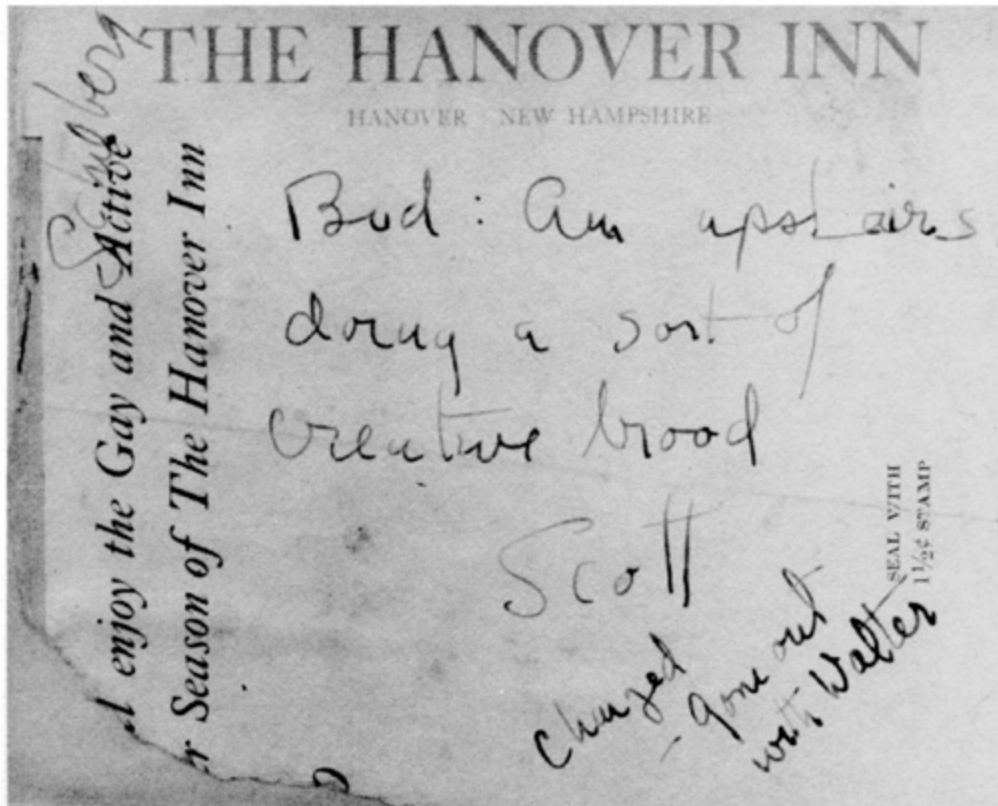 THE HANOVER INN
HANOVER NEW HAMPSHIRE
Schulberg
enjoy the Gay and Active
r Season of The Hanover Inn
Bud: Am upstairs
doing a sort of
creative brood
Scott
SEAL WITH
1½¢ STAMP
changed
- gone out
with Walter